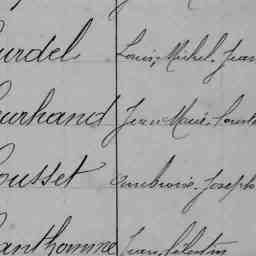 urdel Louis, Michel, Jean
urhand Jean Marie, Louis
ousset Ambroise, Joseph
anthomme Jean, Célestin